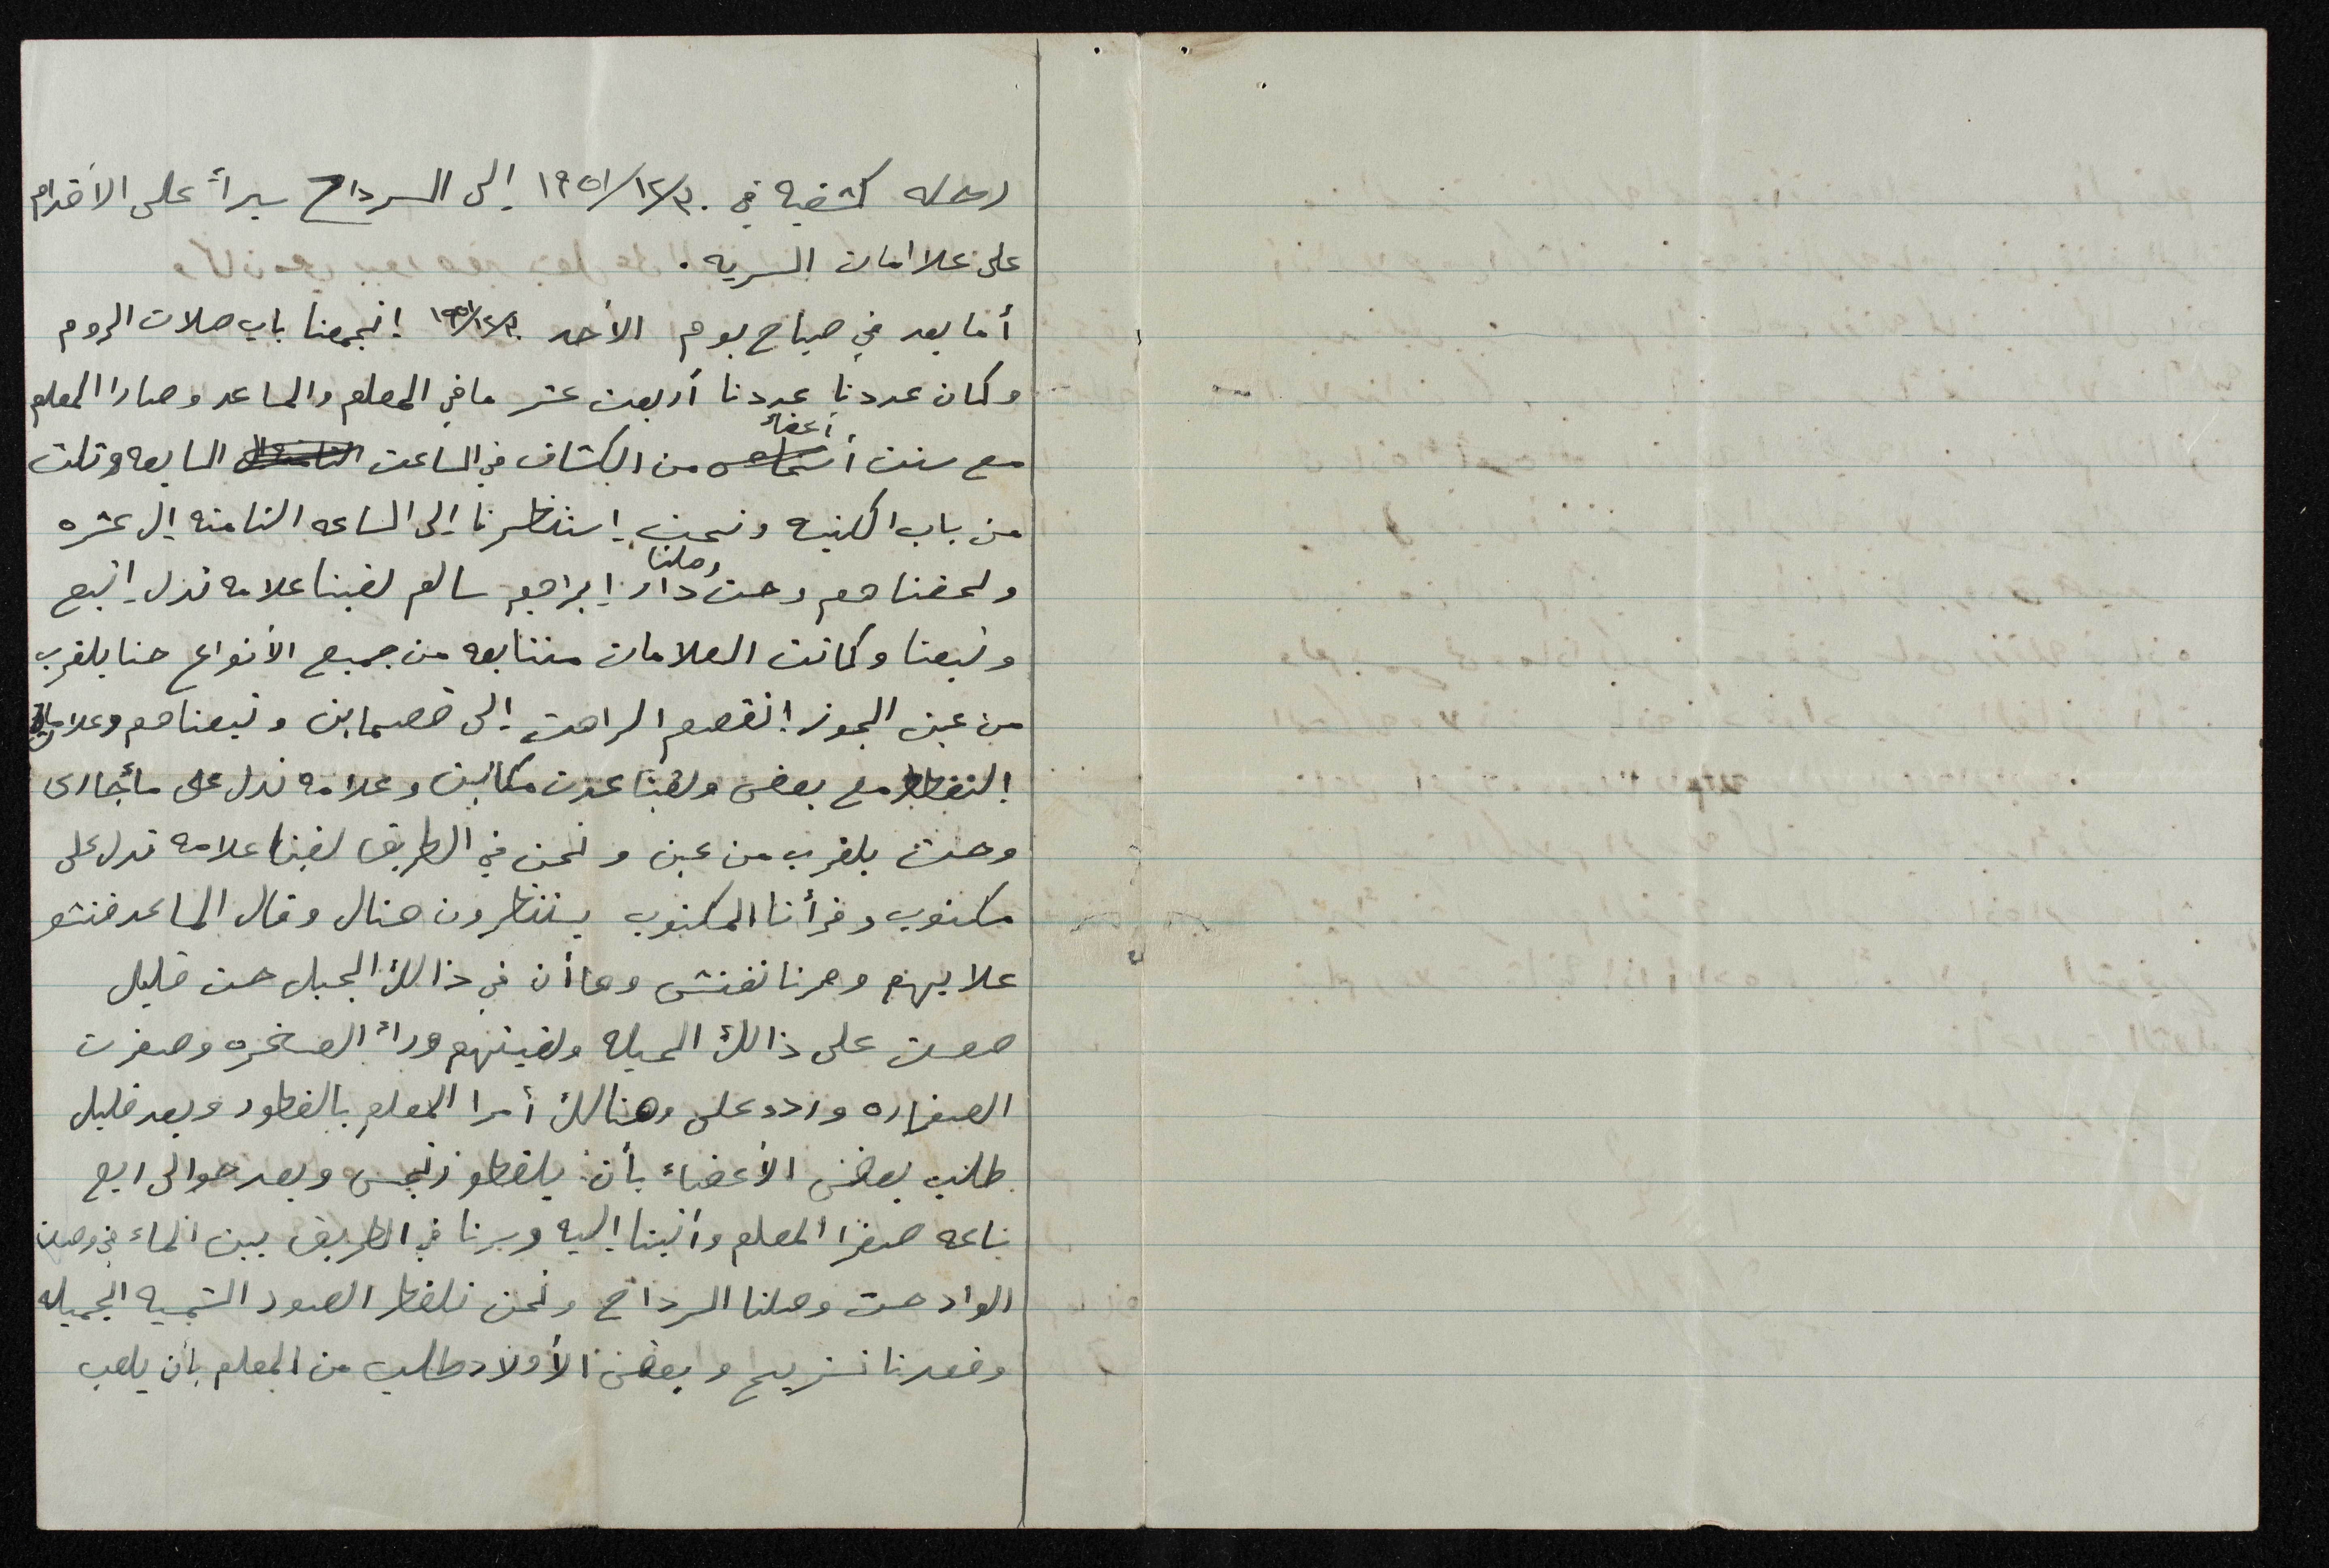 رحله كشفيه في ١٩٥١/١٢/٣٠ إلى السرداح سيراً على الأقدام
على علاامات السريه .
أما بعد في صباح يوم الأحد ١٩٥١/١٢/٣٠ إنجمعنا باب صلات الروم
وكان عددنا عددنا أربعت عشر ما في المعلم والمساعد وصارا المعلم
مع ستت أعضاء من الكشاف في الساعت السابعه وتلت
من باب الكنيسه ونحن إستنظرنا إلى الساعه الثامنه إل عشره
ولحقناهم وحت وصلنا دار إبراجيم سالم لقينا علامه تدل إتبع
وتبعنا وكانت العلامات متتابعه من جميع الأنواع حنا بلقرب
من عين الجوز إنقصم الراهت إلى قصماين وتبعناهم وعلامات
إلتقط مع بعض ولقينا عدت مكاتيب وعلامه تدل على مأجارى
وحت بلقرب من عين ونحن في الطريق لقينا علامه تدل على
مكتوب وقرأنا المكتوب يستنظرون هناك وقال المساعد فتشو
علايهم وصرنا نفتش وهاأن في ذالك الجبل حت قليل
صعت على ذالك الجبله ولقيتهم وراء الصخره وصفرت
الصفاره وردو على وهنالك أمرا المعلم بالفطور وبعد قليل
طلب بعض الأعضاء بأن يلقطو نرجس وبعد حوالى ربع
ساعه صفرا المعلم وأتينا إليه وسرنا في الطريق بين الماء في وصت
الواد حت وصلنا السرداح ونحن نلقط الصور الشمسيه الجميله
وقعدنا نستريح وبعض الأولاد طلب من المعلم بأن يلعب